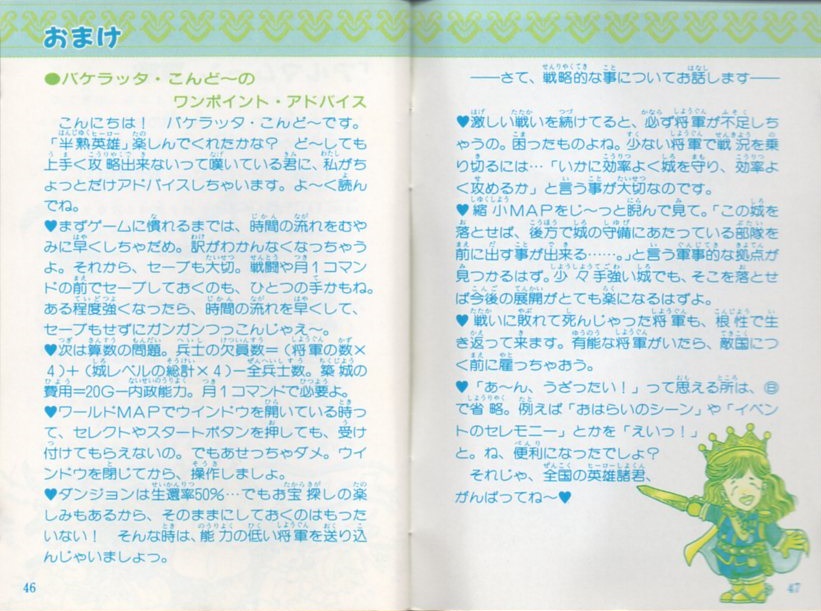 おまけ
●バケラッタ・こんど〜の
ワンポイント・アドバイス
こんにちは! バケラッタ・こんど〜です。
「半熟英雄」楽しんでくれたかな? ど〜しても
上手く攻略出来ないって嘆いている君に、私がち
ょっとだけアドバイスしちゃいます。よ〜く読ん
でね。
♥まずゲームに慣れるまでは、時間の流れをむや
みに早くしちゃだめ。訳がわかんなくなっちゃう
よ。それから、セーブも大切。戦闘や月1コマン
ドの前でセーブしておくのも、ひとつの手かもね。
ある程度強くなったら、時間の流れを早くして、
セーブもせずにガンガンつっこんじゃえ〜。
♥次は算数の問題。兵士の欠員数=(将軍の数×
4)+(城レベルの総計×4)−全兵士数。築城の
費用=20G−内政能力。月1コマンドで必要よ。
♥ワールドMAPでウインドウを開いている時っ
て、セレクトやスタートボタンを押しても、受け
付けてもらえないの。でもあせっちゃダメ。ウイ
ンドウを閉じてから、操作しましょ。
♥ダンジョンは生還率50%…でもお宝探しの楽
しみもあるから、そのままにしておくのはもった
いない! そんな時は、能力の低い将軍を送り込
んじゃいましょっ。
46
――さて、戦略的な事についてお話します――
♥激しい戦いを続けてると、必ず将軍が不足しち
ゃうの。困ったものよね。少ない将軍で戦況を乗
り切るには…「いかに効率よく城を守り、効率よ
く攻めるか」と言う事が大切なのです。
♥縮小MAPをじ〜っと睨んで見て。「この城を
落とせば、後方で城の守備にあたっている部隊を
前に出す事が出来る……。」と言う軍事的な拠点が
見つかるはず。少々手強い城でも、そこを落とせ
ば今後の展開がとても楽になるはずよ。
♥戦いに敗れて死んじゃった将軍も、根性で生
き返って来ます。有能な将軍がいたら、敵国につ
く前に雇っちゃおう。
♥「あ〜ん、うざったい!」って思える所は、Ⓑ
で省略。例えば「おはらいのシーン」や「イベン
トのセレモニー」とかを「えいっ!」
と。ね、便利になったでしょ?
それじゃ、全国の英雄諸君、
がんばってね〜♥
47